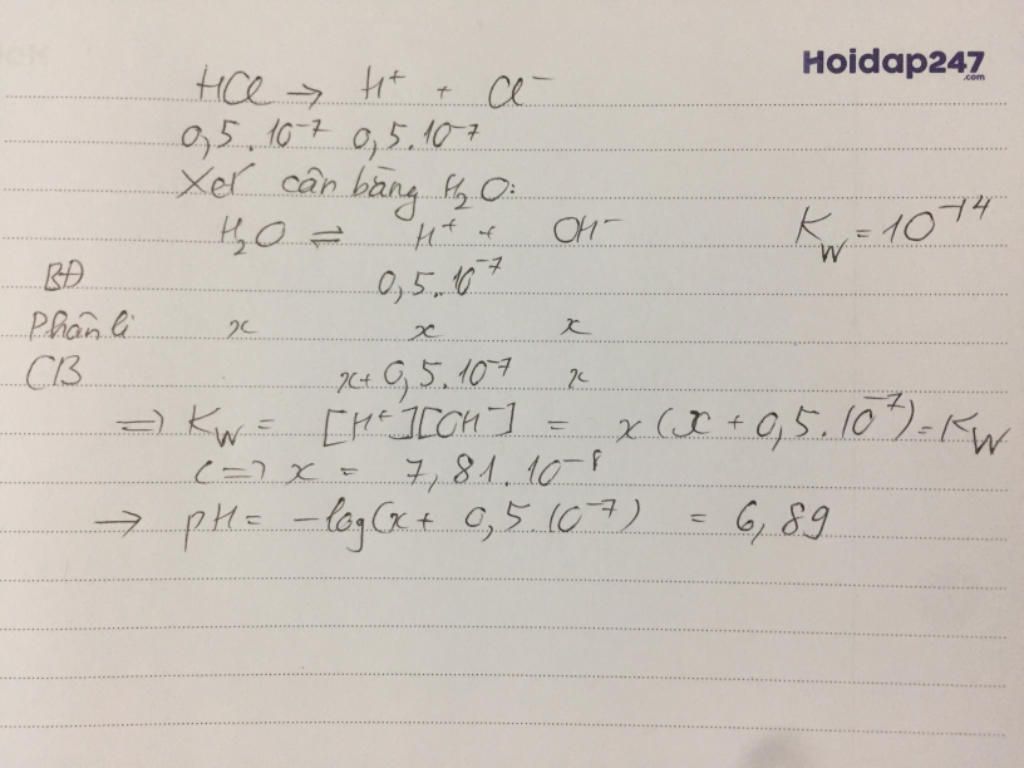 Hoidap247
.com
HCl → H⁺ + Cl⁻
0,5.10⁻⁷ 0,5.10⁻⁷
Xét cân bằng H₂O:
H₂O ⇌ H⁺ + OH⁻ K_W = 10⁻¹⁴
BĐ 0,5.10⁻⁷
Phân li x x x
CB x+0,5.10⁻⁷ x
=> K_W = [H⁺][OH⁻] = x(x+0,5.10⁻⁷)=K_W
<=> x = 7,81.10⁻⁸
→ pH = -log(x+ 0,5.10⁻⁷) = 6,89